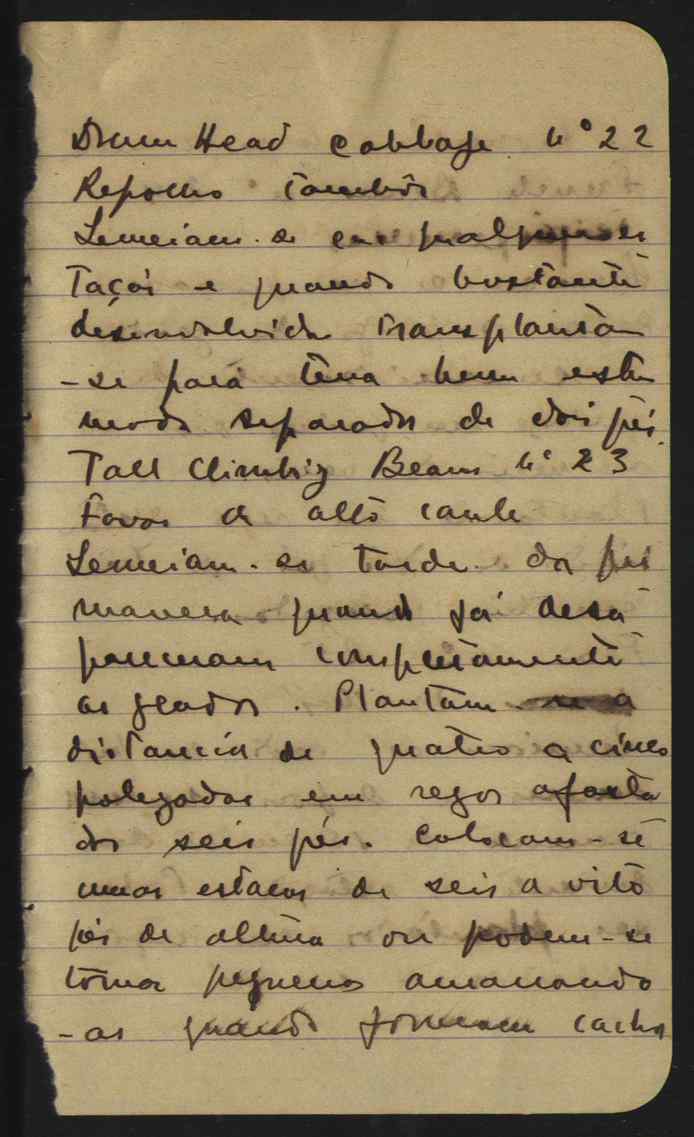 Drum Head Cabbage nº 22
Repolho tambôr
Semeiam-se em qualquer es
tação e quando bastante
desenvolvida transplanta
-se para terra bem estru
mada separados de dois pés.
Tall Climbing Beans nº 23
Favas de alto caule
Semeiam-se tarde da pri
mavera quando já desa
pareceram completamente
as geadas. Plantam-se a
distancia de quatro a cinco
polegadas em regos afasta
dos seis pés. Colocam-se
umas estacas de seis a oito
pés de altura ou podem-se
tornar pequenos amarrando
-as quando formam cachos